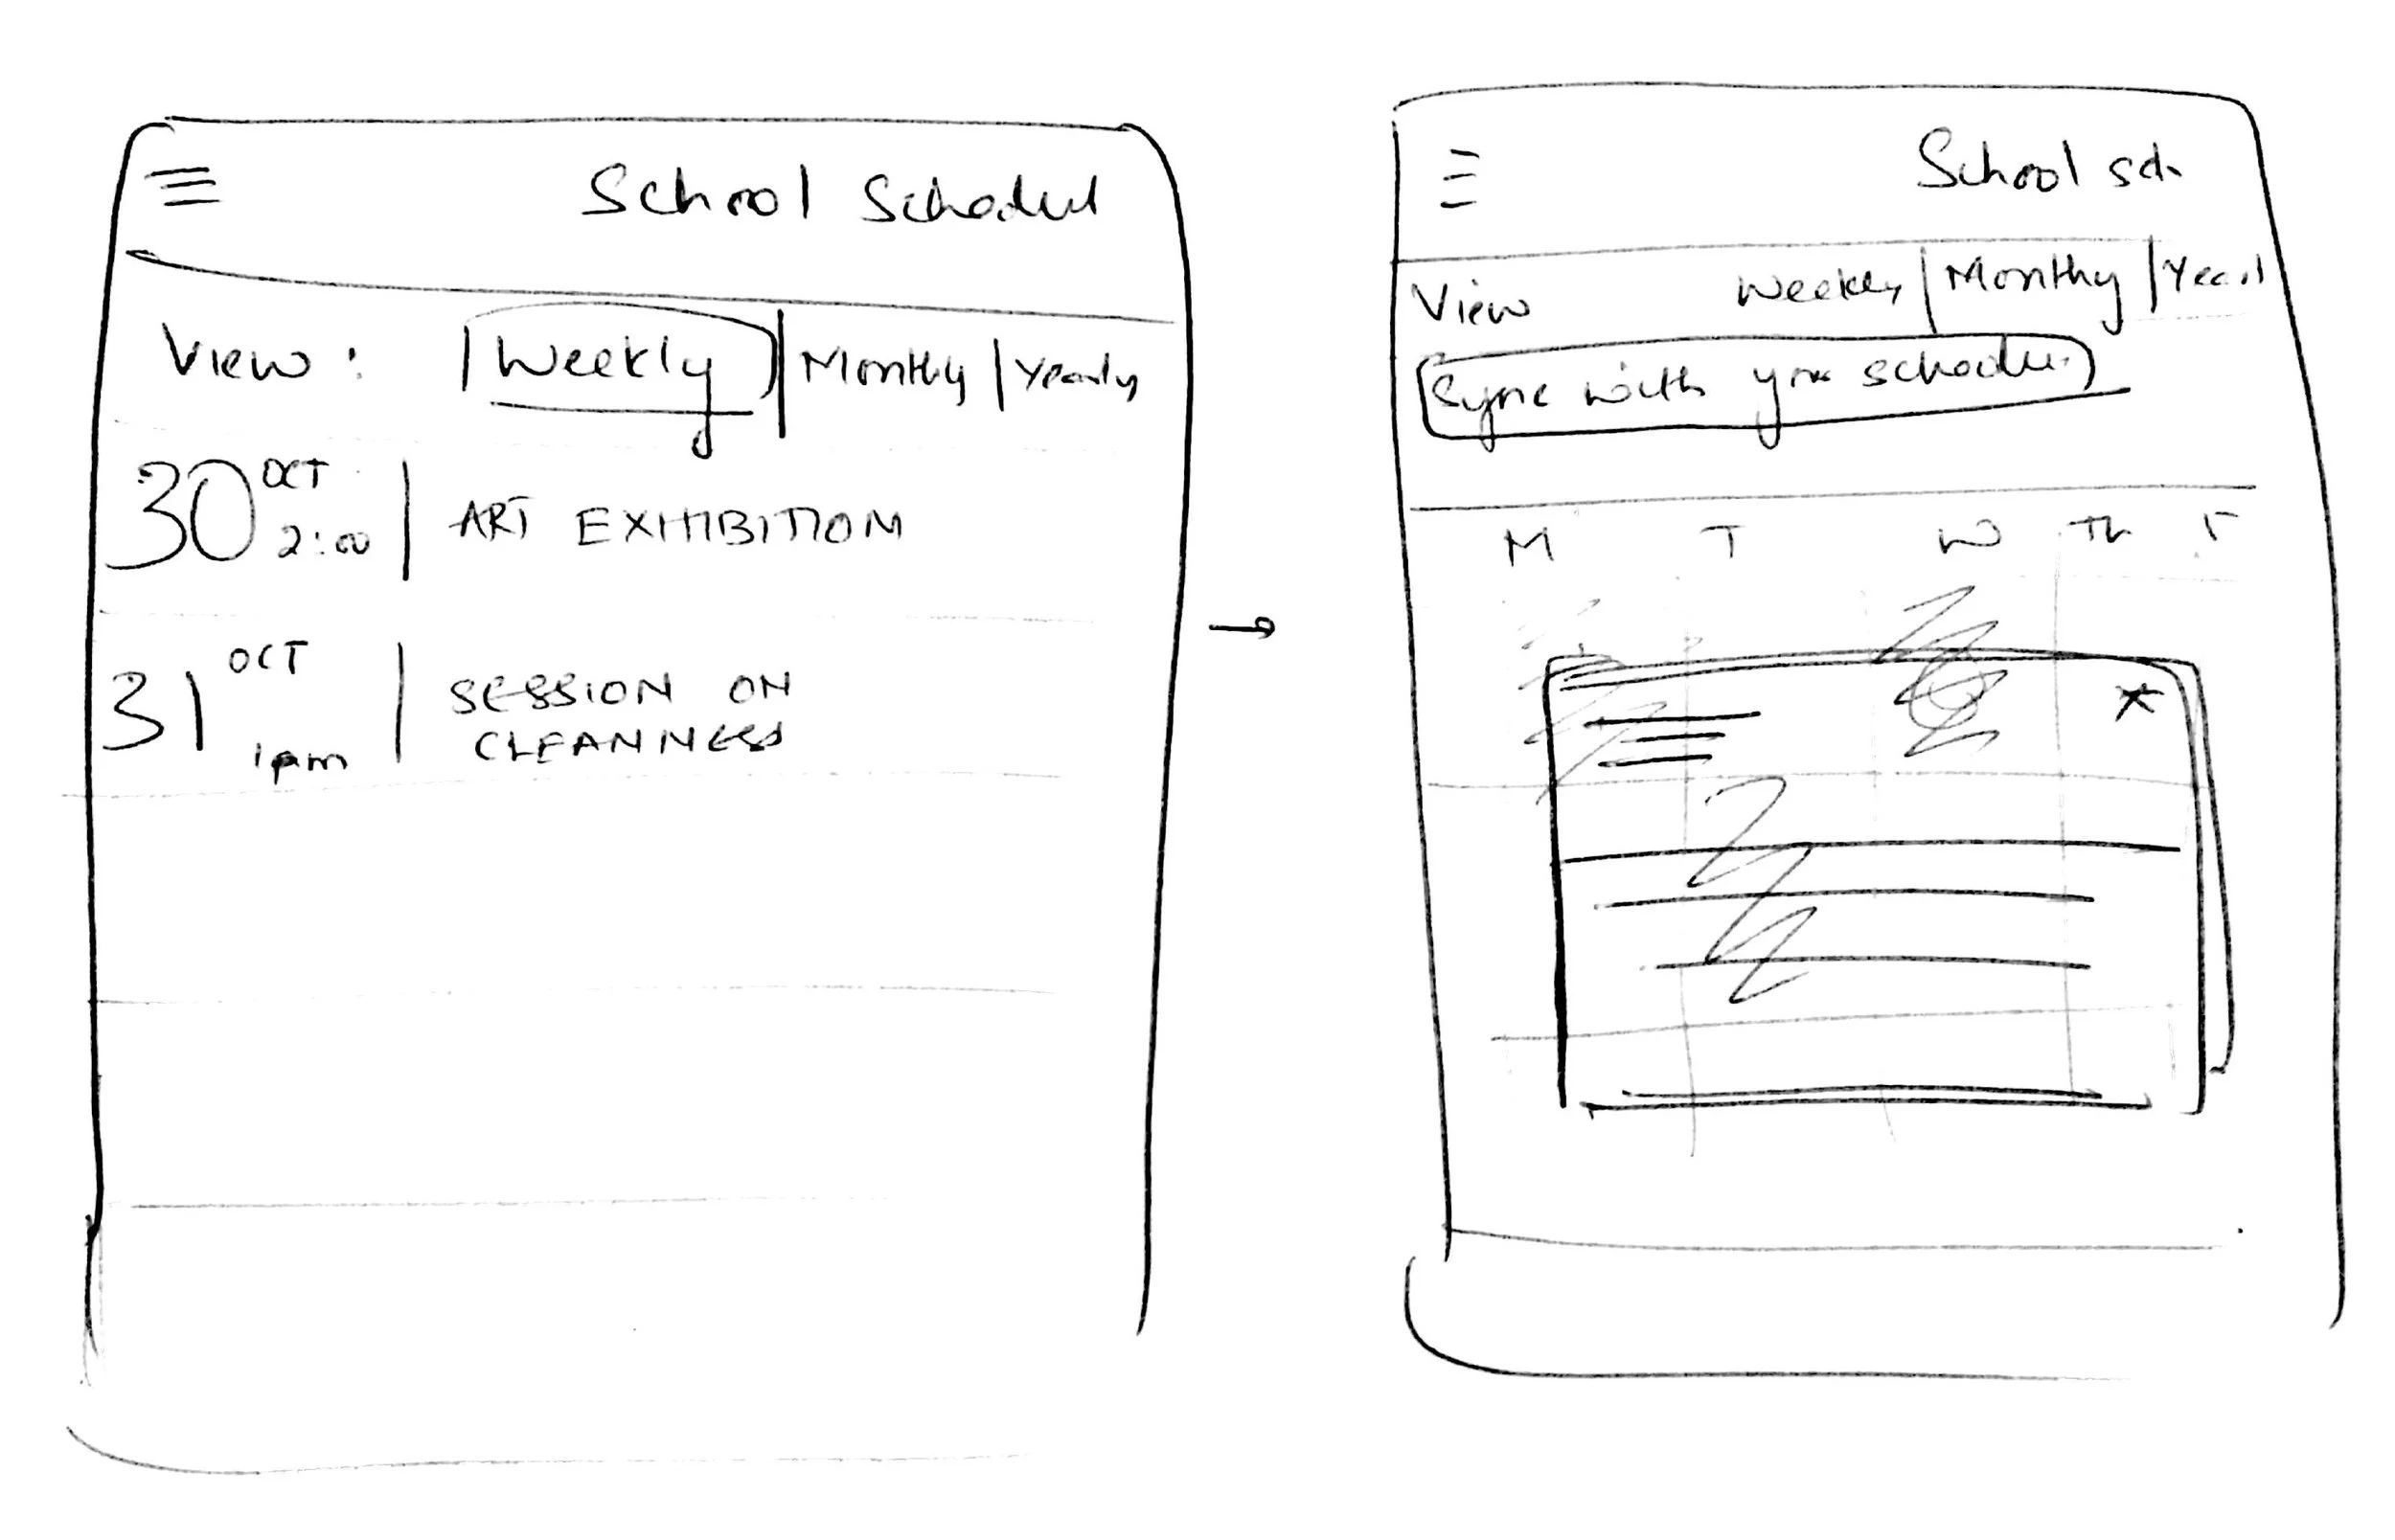 School Schedul
View : | Weekly | Monthly | Yearly
30 OCT 2:00 | ART EXHIBITION
31 OCT 1pm | SESSION ON
CLEANNESS
School sch
View Weekly | Monthly |
Sync with your
M T W Th F